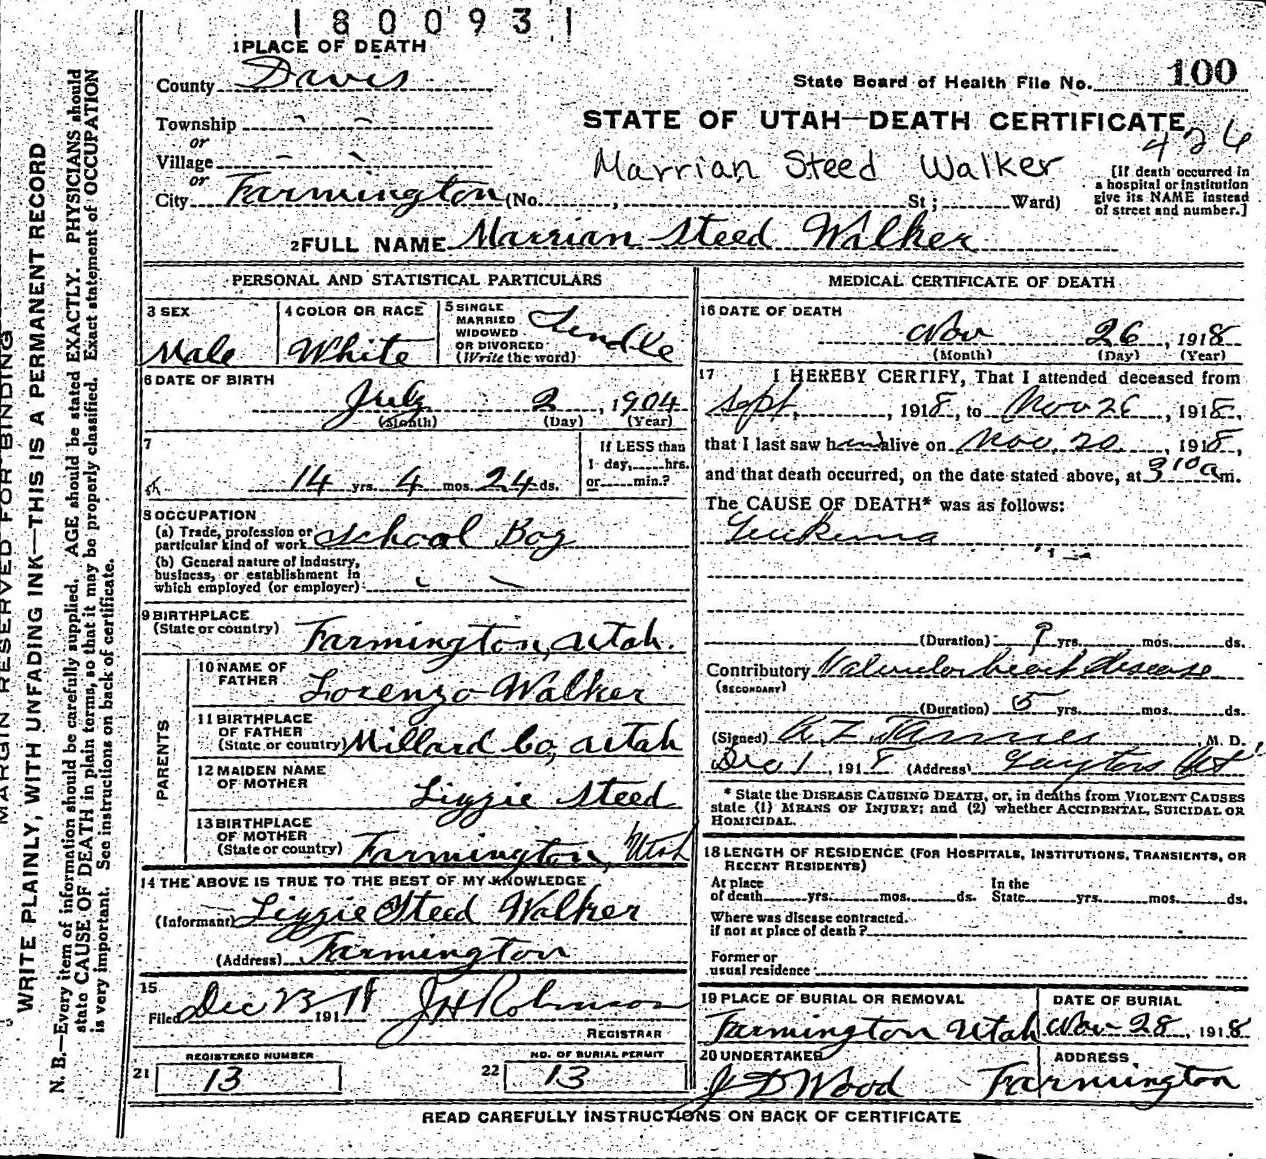 1800931
1 PLACE OF DEATH
County Davis
State Board of Health File No. 100
Township - -
STATE OF UTAH—DEATH CERTIFICATE
426
or
Village - -
Marrian Steed Walker
or
City Farmington (No. , St; Ward)
[If death occurred in
a hospital or institution
give its NAME instead
of street and number.]
2 FULL NAME Marrian Steed Walker
PERSONAL AND STATISTICAL PARTICULARS
3 SEX
Male
4 COLOR OR RACE
White
5 SINGLE
MARRIED
WIDOWED
OR DIVORCED
(Write the word)
6 DATE OF BIRTH
July 2, 1904
(Month) (Day) (Year)
7
14 yrs. 4 mos. 24 ds.
If LESS than
1 day, hrs.
or min.?
8 OCCUPATION
(a) Trade, profession or
particular kind of work School Boy
(b) General nature of industry,
business, or establishment in
which employed (or employer)
9 BIRTHPLACE
(State or country) Farmington, Utah.
PARENTS
10 NAME OF
FATHER Lorenzo Walker
11 BIRTHPLACE
OF FATHER
(State or country) Millard Co, Utah
12 MAIDEN NAME
OF MOTHER Lizzie Steed
13 BIRTHPLACE
OF MOTHER
(State or country) Farmington, Utah
14 THE ABOVE IS TRUE TO THE BEST OF MY KNOWLEDGE
(Informant) Lizzie Steed Walker
(Address) Farmington
15
Filed Dec 23 1918 J H Robinson
REGISTRAR
REGISTERED NUMBER
21 13
NO. OF BURIAL PERMIT
22 13
MEDICAL CERTIFICATE OF DEATH
16 DATE OF DEATH
Nov 26, 1918
(Month) (Day) (Year)
17 I HEREBY CERTIFY, That I attended deceased from
Sept, 1918, to Nov 26, 1918,
that I last saw him alive on Nov. 20, 1918,
and that death occurred, on the date stated above, at 3 10 a m.
The CAUSE OF DEATH* was as follows:
Leukemia
(Duration) ? yrs. mos. ds.
Contributory Valvular heart disease
(SECONDARY)
(Duration) 5 yrs. mos. ds.
(Signed) , M. D.
Dec 1, 1918 (Address) Layton Ut
* State the DISEASE CAUSING DEATH, or, in deaths from VIOLENT CAUSES
state (1) MEANS OF INJURY; and (2) whether ACCIDENTAL, SUICIDAL OR
HOMICIDAL.
18 LENGTH OF RESIDENCE (FOR HOSPITALS, INSTITUTIONS, TRANSIENTS, OR
RECENT RESIDENTS)
At place
of death yrs. mos. ds. In the
State yrs. mos. ds.
Where was disease contracted.
if not at place of death?
Former or
usual residence
19 PLACE OF BURIAL OR REMOVAL
Farmington Utah
DATE OF BURIAL
Nov 28, 1918
20 UNDERTAKER
J D Wood
ADDRESS
Farmington
READ CAREFULLY INSTRUCTIONS ON BACK OF CERTIFICATE
MARGIN RESERVED FOR BINDING
WRITE PLAINLY, WITH UNFADING INK—THIS IS A PERMANENT RECORD
N. B.—Every item of information should be carefully supplied. AGE should be stated EXACTLY. PHYSICIANS should
state CAUSE OF DEATH in plain terms, so that it may be properly classified. Exact statement of OCCUPATION
is very important. See instructions on back of certificate.